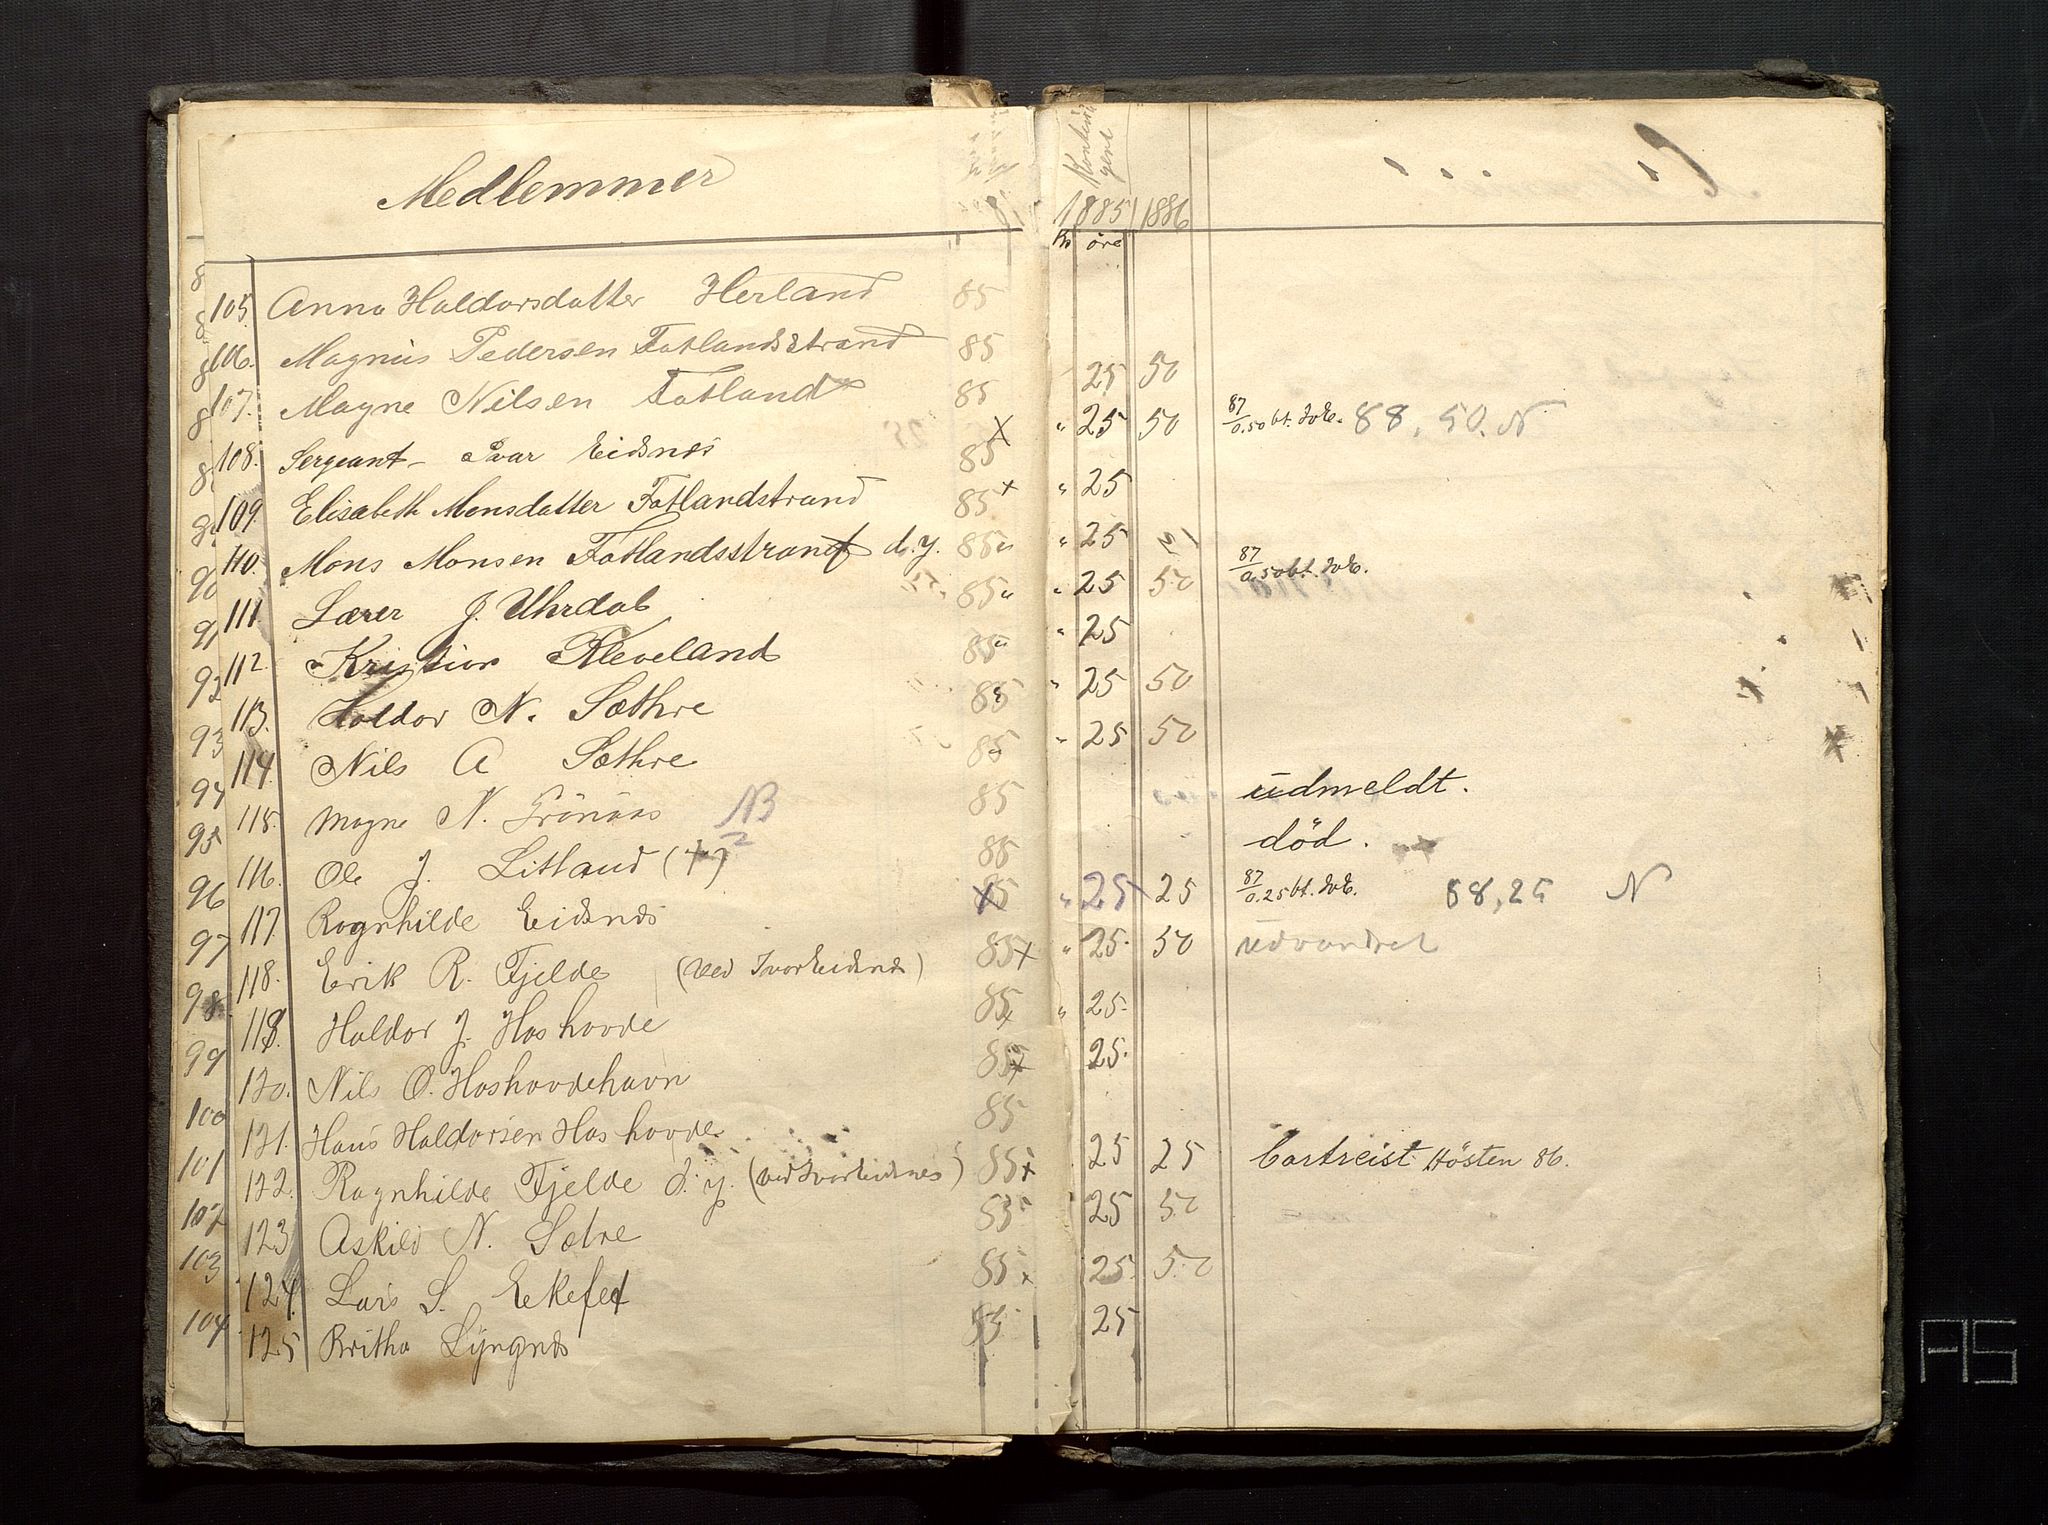 Medlemmer
Kontin
gent
1885 1886
Kr öre
105. Anna Haldorsdatter Herland 85
106. Magnus Pedersen Fatlandsstrand 85 25 50
107. Magne Nilsen Fatland 85
x " 25 50 87 0.50 bt. 88, 50. N
108. Sergeant - Ivar Eidsnes 85 " 25
109. Elisabeth Monsdatter Fatlandstrand 85 x " 25
110. Mons Monsen Fatlandsstrand d.y. 85 " " 25 50 87 0.50 bt.
111. Lærer J. Uhrdal 85 " " 25
112 Kristian Kleveland 85 " " 25 50
113. Haldor N. Sæthre 85 " " 25 50
114. Nils A Sæthre 85 "
115. Magne N. Grönaas NB 85 udmeldt.
116. Ole J. Litland (+) 85 död.
117. Ragnhilde Eidsnes 85 x " 25 25 87 0.25 bt. 88, 25 N
118. Erik R. Fjelde (ved Ivar Eidsnes) 85 x " 25. 50 udvandret
119. Haldor J. Hoshovde 85 x " 25.
120. Nils O. Hoshovdehavn 85 x 25.
121. Hans Haldorsen Hoshovde 85
122. Ragnhilde Fjelde d.y. (ved Ivar Eidsnes) 85 x 25 25 bortreist Hösten 86.
123 Askild N. Sætre 85 25 50
124. Lars S. Ekefet 85 x 25. 50
125 Britha Lyngnes 85 25
90
91
92
93
94
95
96
97
98.
99
100
101
102
103
104
AS